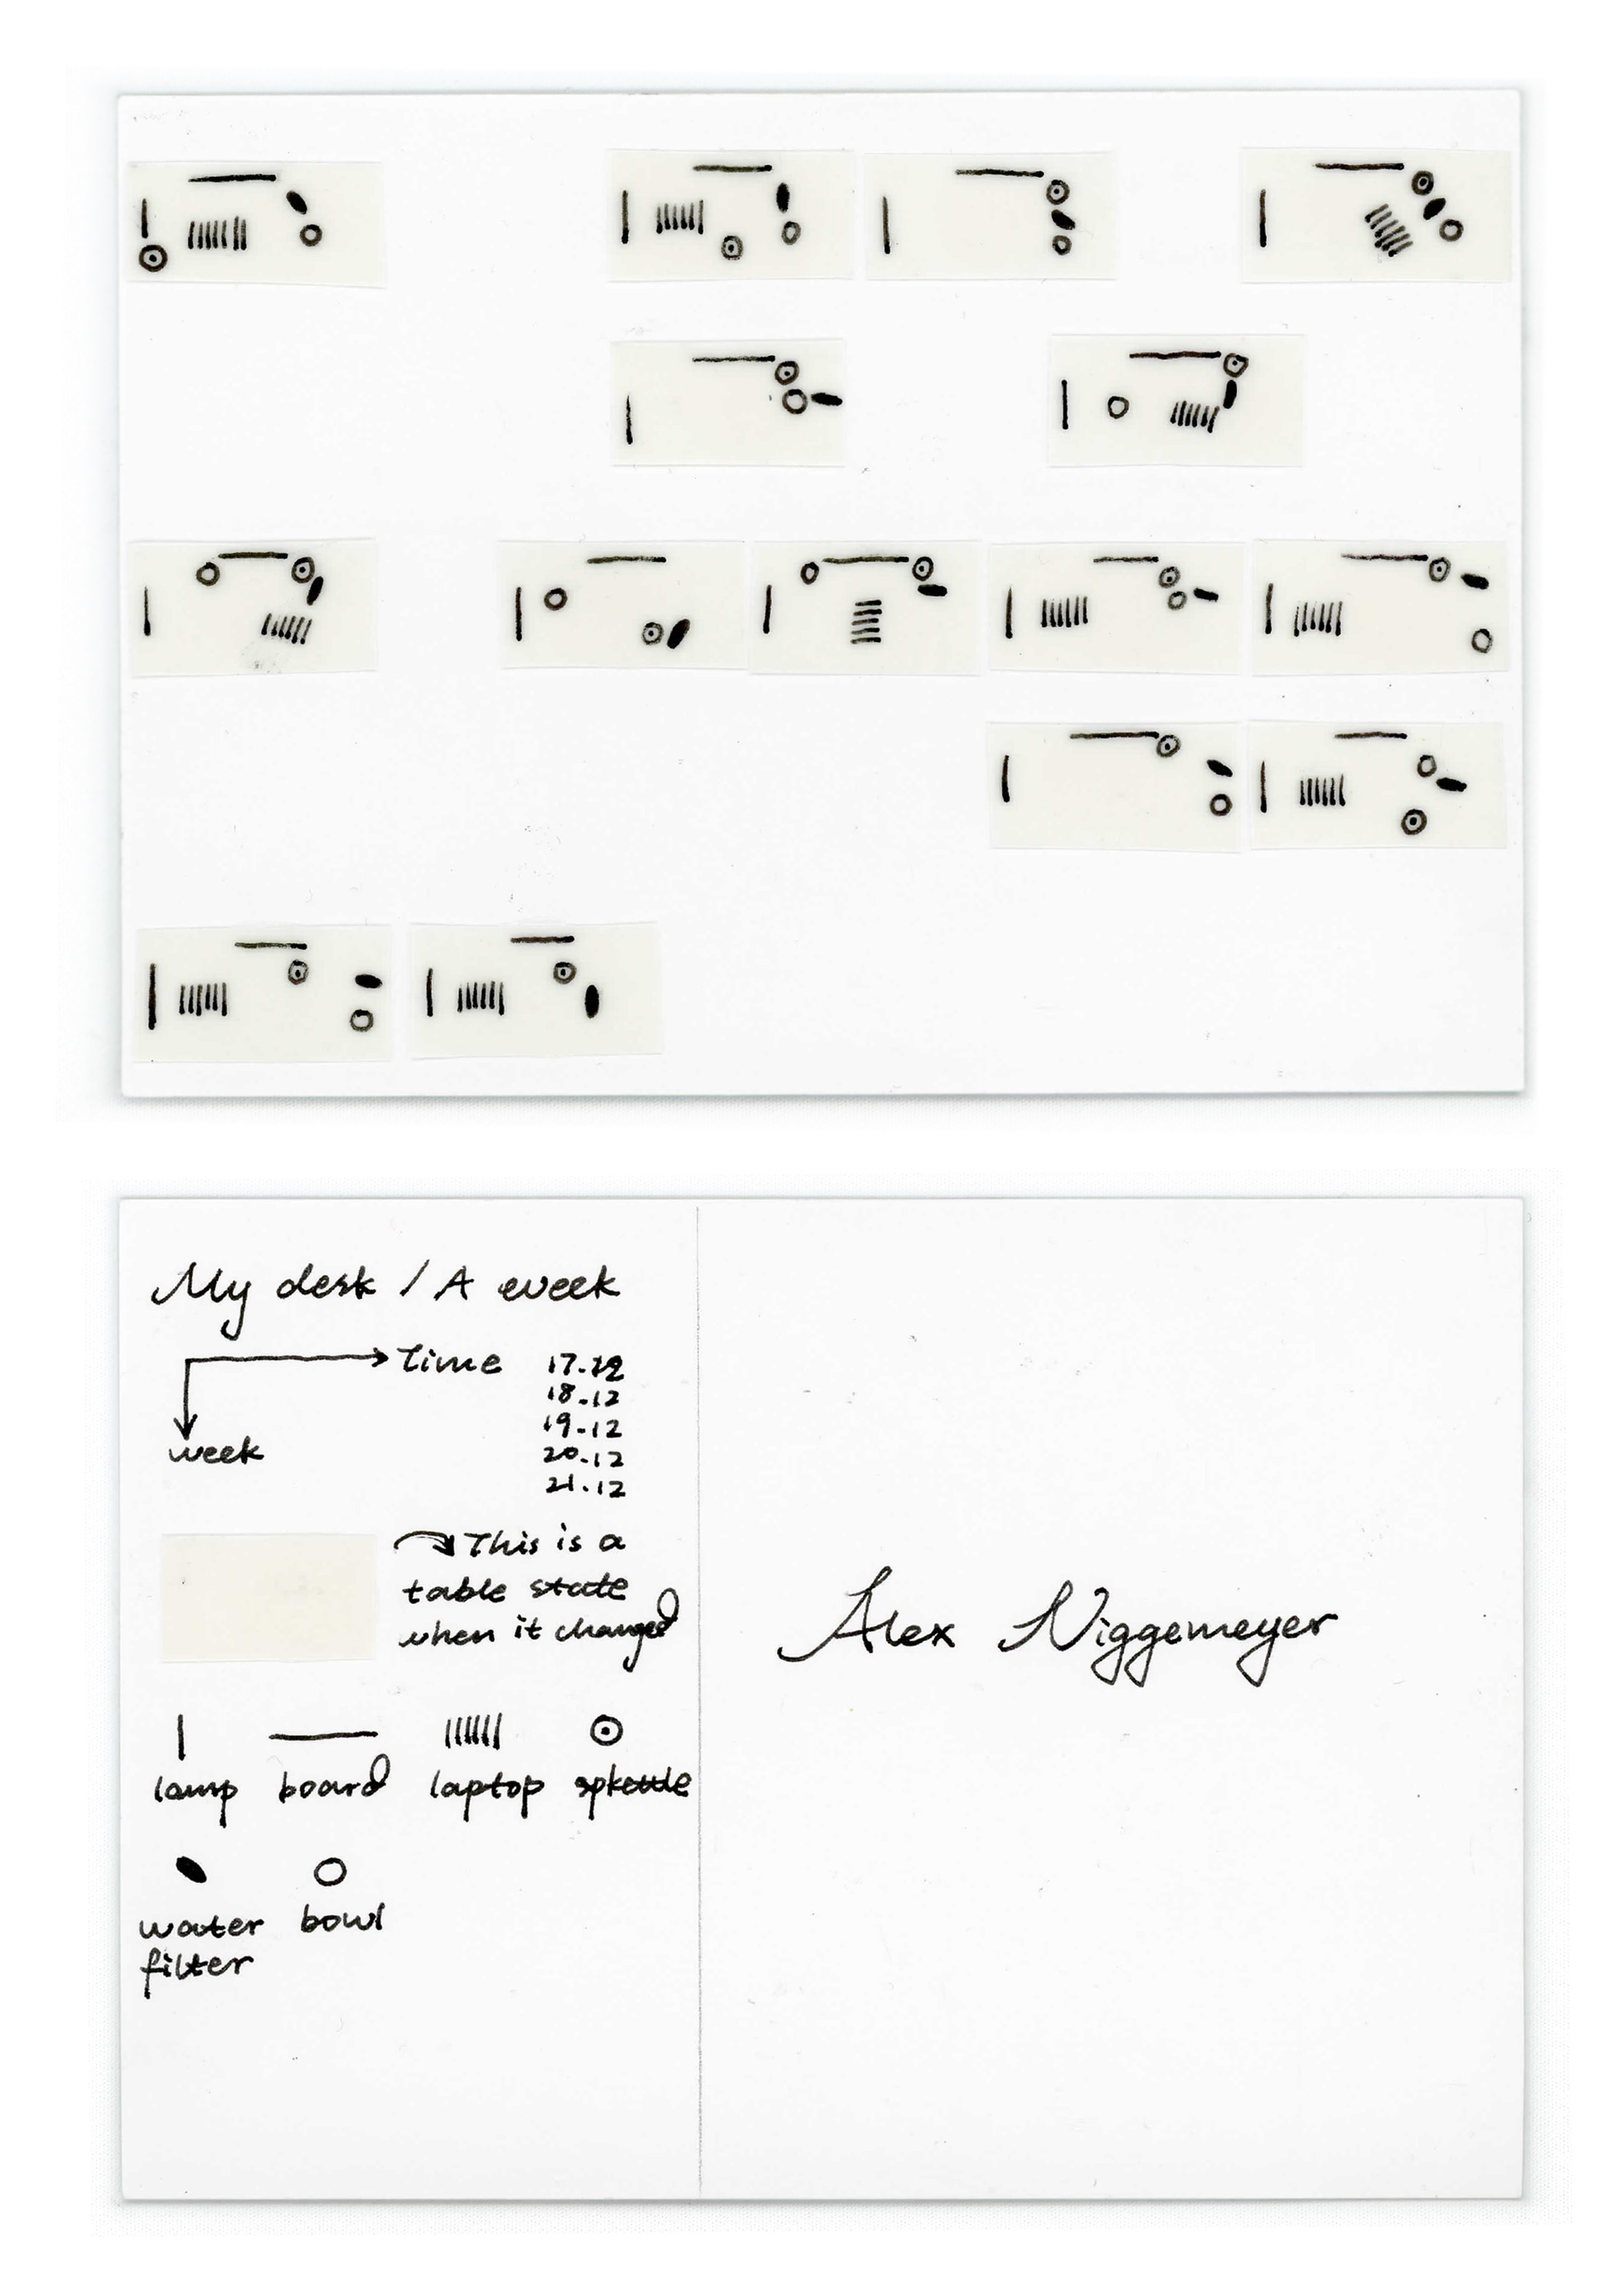 My desk / A week
time
17.12
18.12
19.12
20.12
21.12
week
This is a
table state
when it changed
lamp board laptop spkettle
water bowl
filter
Alex Niggemeyer